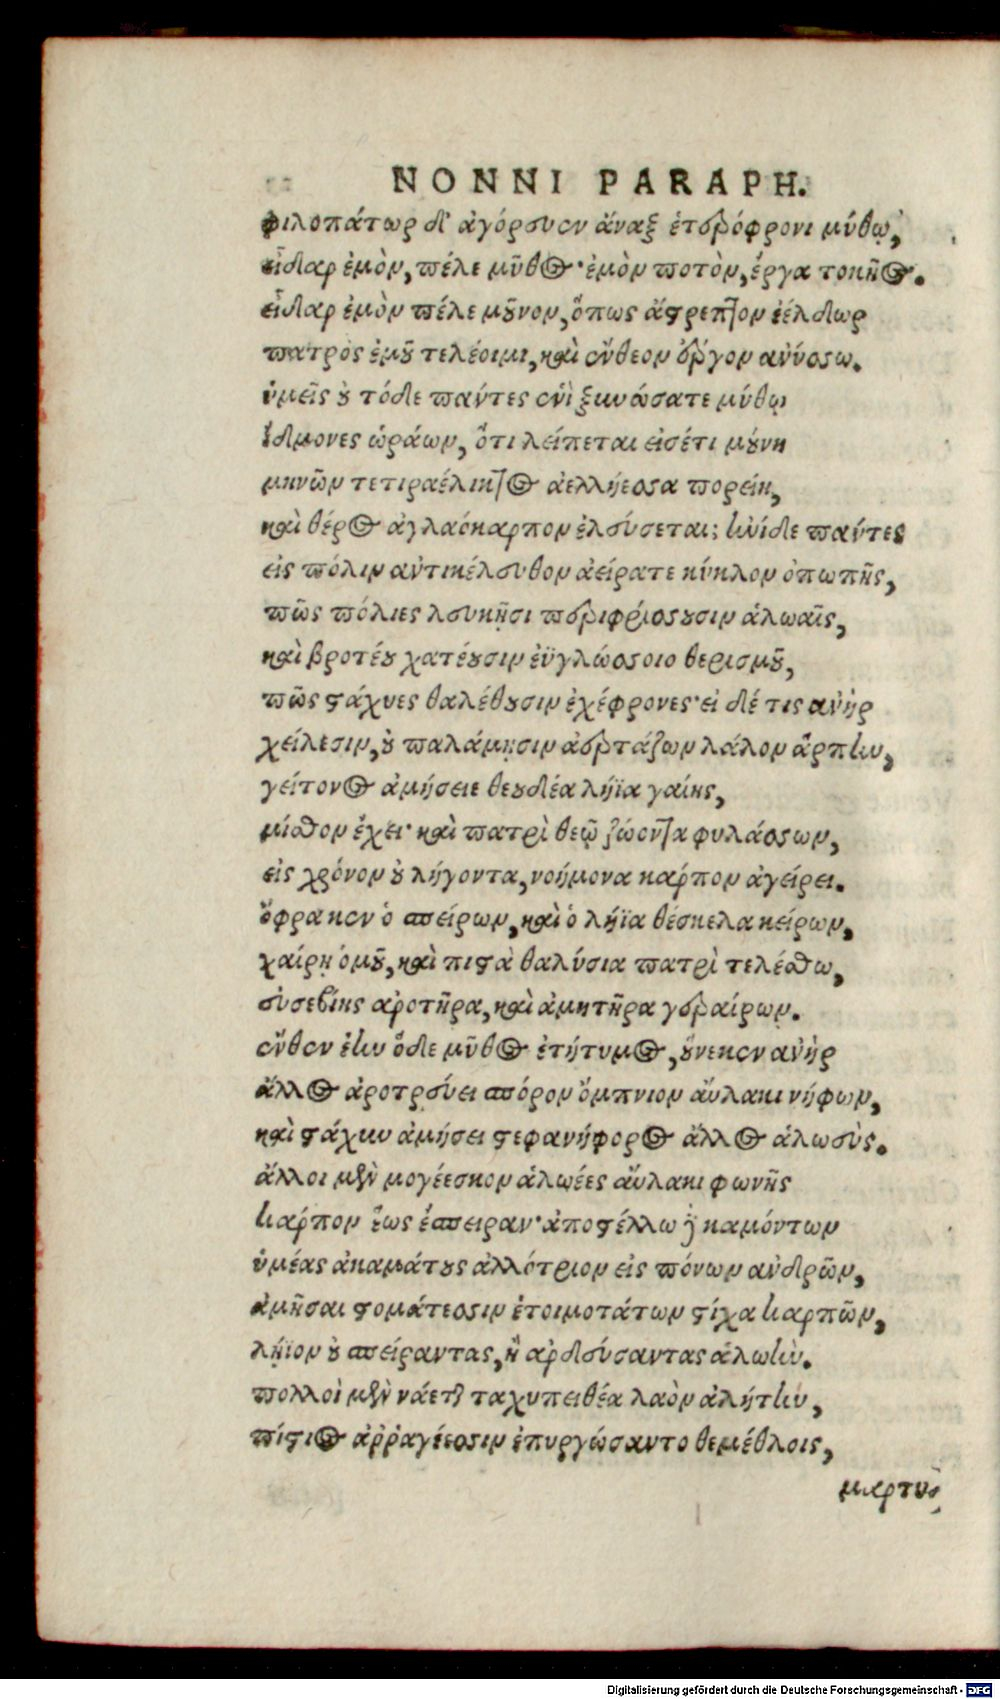 NONNI PARAPH.
φιλοπάτωρ δ' ἀγόρευεν ἄναξ ἑτερόφρονι μύθῳ,
εἶδαρ ἐμὸν, πέλε μῦθος· ἐμὸν ποτὸν, ἔργα τοκῆος.
εἶδαρ ἐμὸν πέλε μοῦνον, ὅπως ἄτρεπτον ἐέλδωρ
πατρὸς ἐμοῦ τελέοιμι, καὶ ἔνθεον ἔργον ἀνύσσω.
ὑμεῖς οὐ τόδε πάντες ἑνὶ ξυνώσατε μύθῳ
ἴδμονες ὡράων, ὅτι λείπεται εἰσέτι μούνη
μηνῶν τετραέλικτος ἀελλήεσσα πορείη,
καὶ θέρος ἀγλαόκαρπον ἐλεύσεται; ἠνίδε πάντες
εἰς πόλιν ἀντικέλευθον ἀείρατε κύκλον ὀπωπῆς,
πῶς πόλιες λευκῇσι περιφρίσσουσιν ἀλωαῖς,
καὶ βροτέου χατέουσιν ἐϋγλώσσοιο θερισμοῦ,
πῶς στάχυες θαλέθουσιν ἐχέφρονες· εἰ δέ τις ἀνὴρ
χείλεσιν, οὐ παλάμῃσιν ἀερτάζων λάλον ἅρπην,
γείτονος ἀμήσειε θεουδέα λήϊα γαίης,
μίσθον ἔχει· καὶ πατρὶ θεῷ ζώοντα φυλάσσων,
εἰς χρόνον οὐ λήγοντα, νοήμονα καρπὸν ἀγείρει.
ὄφρα κεν ὁ σπείρων, καὶ ὁ λήϊα θέσκελα κείρων,
χαίρῃ ὁμοῦ, καὶ πιστὰ θαλύσια πατρὶ τελέσθω,
εὐσεβίης ἀροτῆρα, καὶ ἀμητῆρα γεραίρων.
ἔνθεν ἔην ὅδε μῦθος ἐτήτυμος, οὕνεκεν ἀνὴρ
ἄλλος ἀροτρεύει σπόρον ὄμπνιον αὔλακι νήφων,
καὶ στάχυν ἀμήσει στεφανήφορος ἄλλος ἀλωεύς.
ἄλλοι μὲν μογέεσκον ἀλωέες αὔλακι φωνῆς
καρπὸν ἕως ἔσπειραν· ἀποστέλλω δὲ καμόντων
ὑμέας ἀκαμάτους ἀλλότριον εἰς πόνων ἀνδρῶν,
ἀμῆσαι στομάτεσσιν ἑτοιμοτάτων στίχα καρπῶν,
λήϊον οὐ σπείραντας, ἢ ἀρδεύσαντας ἀλωήν.
πολλοὶ μὲν νάεται ταχυπειθέα λαὸν ἀλήτην,
πίστιος ἀῤῥαγέεσσιν ἐπυργώσαντο θεμέθλοις,
μαρτυ-
Digitalisierung gefördert durch die Deutsche Forschungsgemeinschaft - DFG